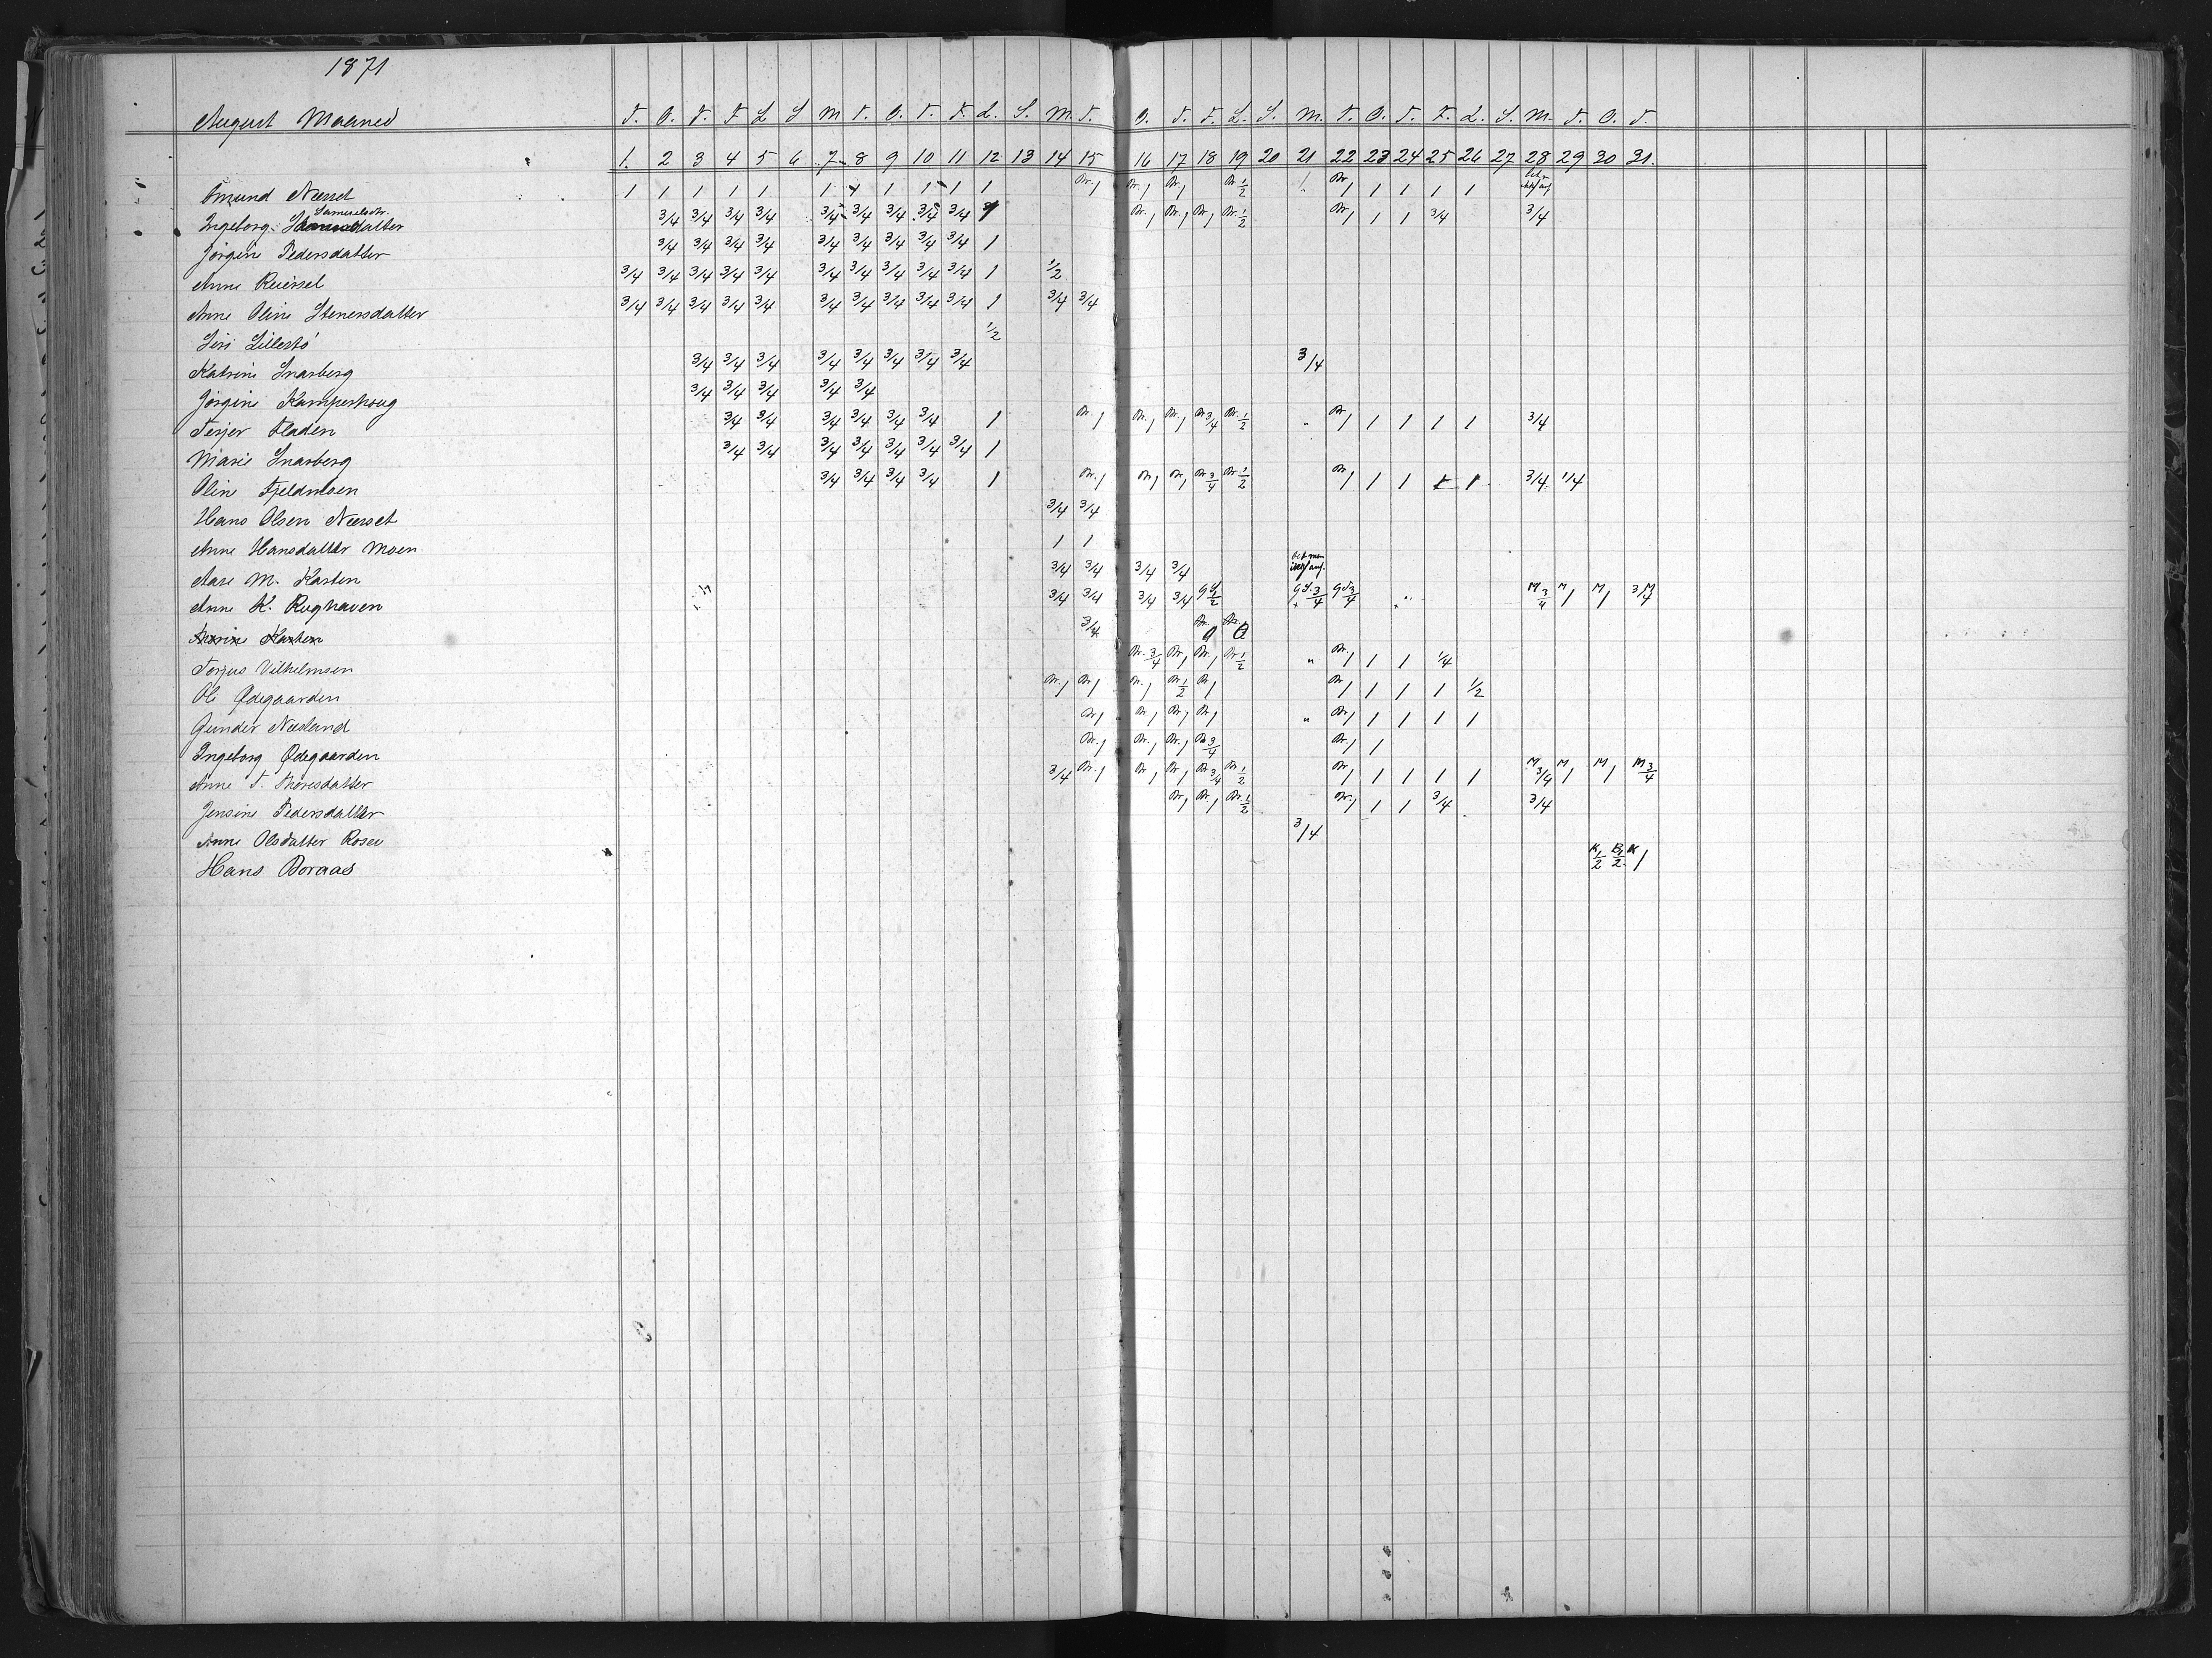 1871
August Maaned T. O. T. F L S M T. O. T. F. L. S. M. T. O. T. F. L. S. M. T. O. T. F. L. S. M. T. O. T.
1. 2 3 4 5 6 7 8 9 10 11 12 13 14 15 16 17 18 19 20 21 22 23 24 25 26 27 28 29 30 31.
Amund Næsset 1 1 1 1 1 1 1 1 1 1 1 Br. 1 Br. 1 Br. 1 Br 1/2 1. Br 1 1 1 1 1
Samuelsdtr.
Ingeborg 3/4 3/4 3/4 3/4 3/4 3/4 3/4 3/4 3/4 1 Br. 1 Br. 1 Br. 1 Br. 1/2 Br 1 1 1 3/4 3/4
Jørgine Pedersdatter 3/4 3/4 3/4 3/4 3/4 3/4 3/4 3/4 3/4 1
Anne 3/4 3/4 3/4 3/4 3/4 3/4 3/4 3/4 3/4 3/4 1 1/2
Anne Oline Stenersdatter 3/4 3/4 3/4 3/4 3/4 3/4 3/4 3/4 3/4 3/4 1 3/4 3/4
Siri Lillestø 1/2
Katrine Snarberg 3/4 3/4 3/4 3/4 3/4 3/4 3/4 3/4 3/4
Jørgine Kamperhoug 3/4 3/4 3/4 3/4 3/4
Terjer Fladen 3/4 3/4 3/4 3/4 3/4 3/4 1 Br. 1 Br. 1 Br. 1 Br 3/4 Br. 1/2 " Br 1 1 1 1 1 3/4
Marie Snarberg 3/4 3/4 3/4 3/4 3/4 3/4 3/4 1
Oline Fjeldmoen 3/4 3/4 3/4 3/4 1 Br. 1 Br 1 Br 1 Br 3/4 Br 1/2 Br 1 1 1 1 1 3/4 1/4
Hans Olsen Næsset 3/4 3/4
Anne Hansdatter Moen 1 1
Aase M. Kasten 3/4 3/4 3/4 3/4
Anne K. Rughaven 3/4 3/4 3/4 3/4 Gd 1/2 Gd. 3/4 Gd 3/4 " M 3/4 M 1 M 1 3/4 M
Marine Kasten 3/4 Br. Br.
Torjus Vilhelmsen Br. 3/4 Br 1 Br. 1 Br 1/2 " Br. 1 1 1 1/4
Ole Ødegaarden Br. 1 Br 1 Br. 1 Br 1/2 Br 1 Br 1 1 1 1 1/2
Gunder Næsland Br 1 Br 1 Br 1 Br 1 " Br 1 1 1 1 1
Ingeborg Ødegaarden Br. 1 Br. 1 Br. 1 Br 3/4 Br. 1 1
Anne T. Thoresdatter 3/4 Br. 1 Br 1 Br 1 Br 3/4 Br 1/2 Br 1 1 1 1 1 M 3/4 M 1 M 1 M 3/4
Jensine Pedersdatter Br 1 Br. 1 Br. 1/2 Br. 1 1 1 3/4 3/4
Anne Olsdatter Rosen 3/4
Hans Boraas K 1/2 B 1/2 K 1